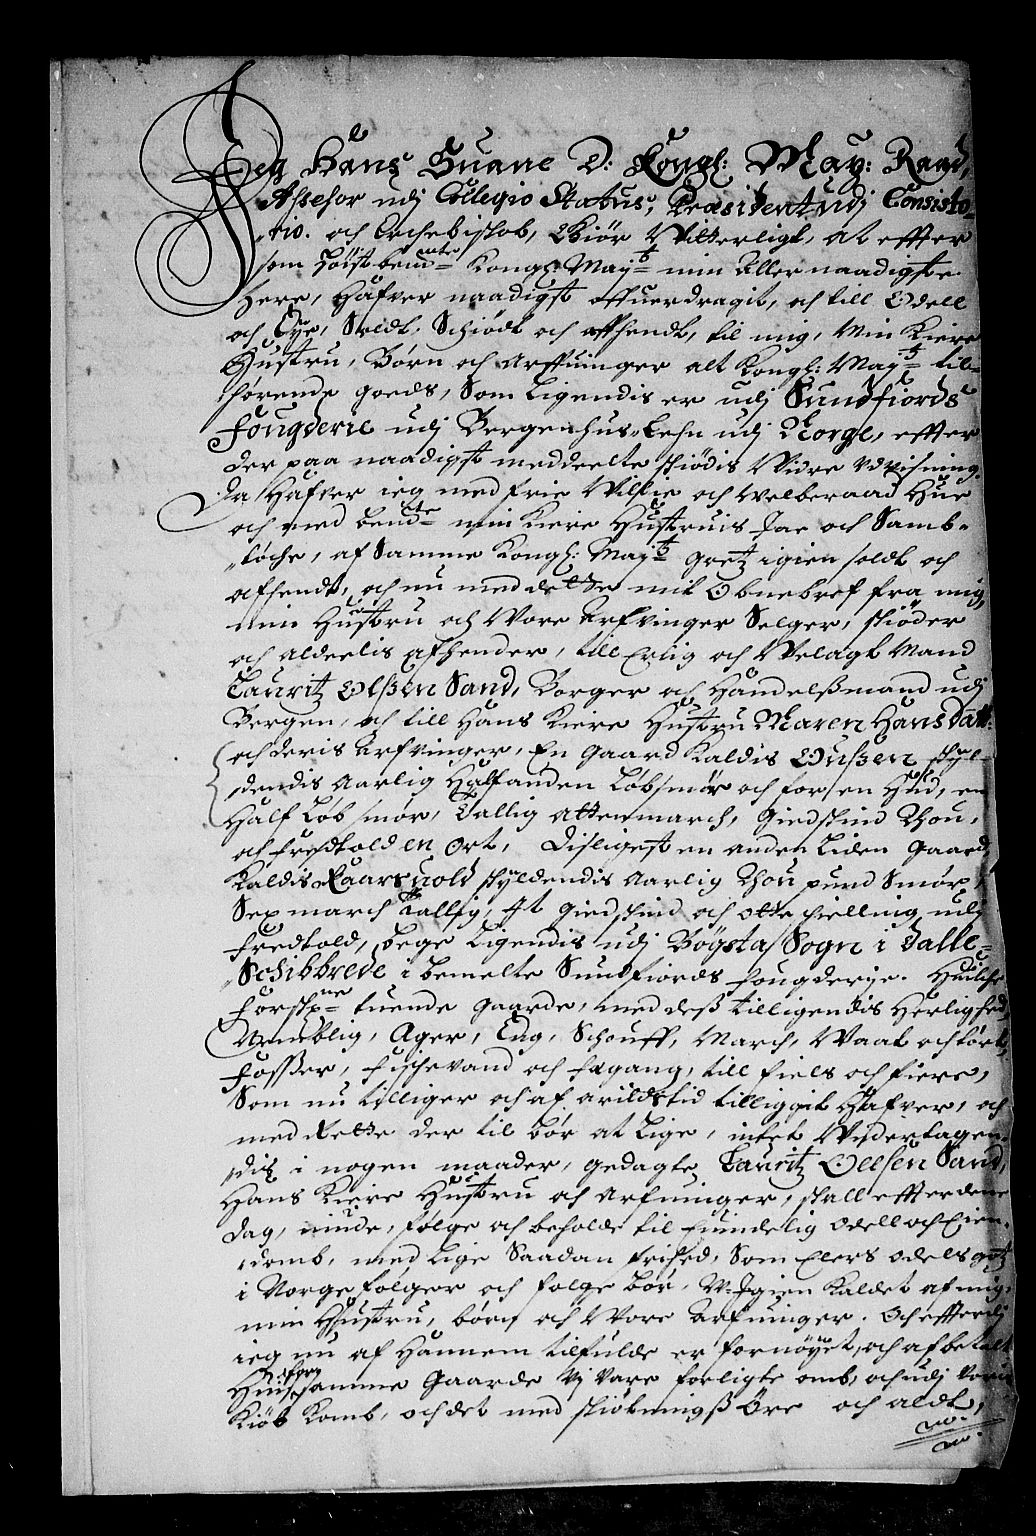 Jeg Hans Suane D: Kongl: May: Raad,
Assesor udj Collegio Status, Præsident udj Consisto-
rio. och Erchebiskob, Kiør Vitterligt, at effter
som høistbemte Kongl: Mayts min Aller naadigste
Herre, Hafver naadigst offuerdragit, och till Odell
och Eye, Soldt, Schiødt och affhendt, til mig, Min Kiere
Hustru, Børn och Arffuinger alt Kongl: Mayts til-
hørende goeds, Som Ligendis er udj Sundfiords
Fougderie udj Bergenhus Lehn udj Norge, effter
der paa naadigst meddeelte skiødis Vidre Udvisning.
Da Hafver ieg med frie Villie och Velberaad Hue
och med bemte min Kiere Hustruis Jae och Samb-
töche, af Samme Kongl: Mayts gretz igien soldt och
afhendt, och nu med dette mit Obnebref fra mig,
min Hustru och Vore Arfvinger Selger, skiøder
och aldeelis afhender, till Erlig och Velagt Mand
Lauritz Olsßen Sand, Borger och Handelßmand udj
Bergen, och till Hans Kiere Hustru Maren Hansdatt:
och deris Arfvinger, En Gaard Kaldis Oußen skyl-
dendis Aarlig Halfanden Løb smør och for en Hud, en
Half Løb smør, Tallig atten march, Giedskind Thou,
och fredtold en Ort, Disligest en anden Liden Gaard
Kaldis Kaarsuold skyldendis Aarlig Thou pund Smør,
Sex march Tallig, It giedskind och otte skielling udj
fredtold, bege Ligendis udj Bögsta Sogn i Dalle-
Schibbrede i bemelte Sundfiords fougderje. Huilche
forskpne tuende Gaarde, med deß tilligendis Herlighed,
Nemblig, Ager, Eng, Schouff, March, Vaat och tørt,
Fosßer, fischevand och fægang, till fiels och fiere,
Som nu tilliger och af arildstid tilliggit Hafver, och
med rette der til bør at Lige, intet Undertagen-
dis i nogen maader, gedagte Lauritz Ollsen Sand,
Hans Kiere Hustru och Arfuinger, skall effter denne
dag, niude, følge och beholde til Euindelig Odell och Eien-
domb, med Lige Saadan frihed, Som Elers Odels gotz
i Norge følger och følge bør, V-Igien Kaldet af mig,
min Hustru, børn och Vore Arfuinger. Och effterdj
ieg nu af Hannem tilfulde er fornøyet, och afbetalt
for
Huis samme Gaarde Vj Vare forligte omb, och udj Voris
Kiöb Komb, och det med skiøtningsß Øre och aldt,